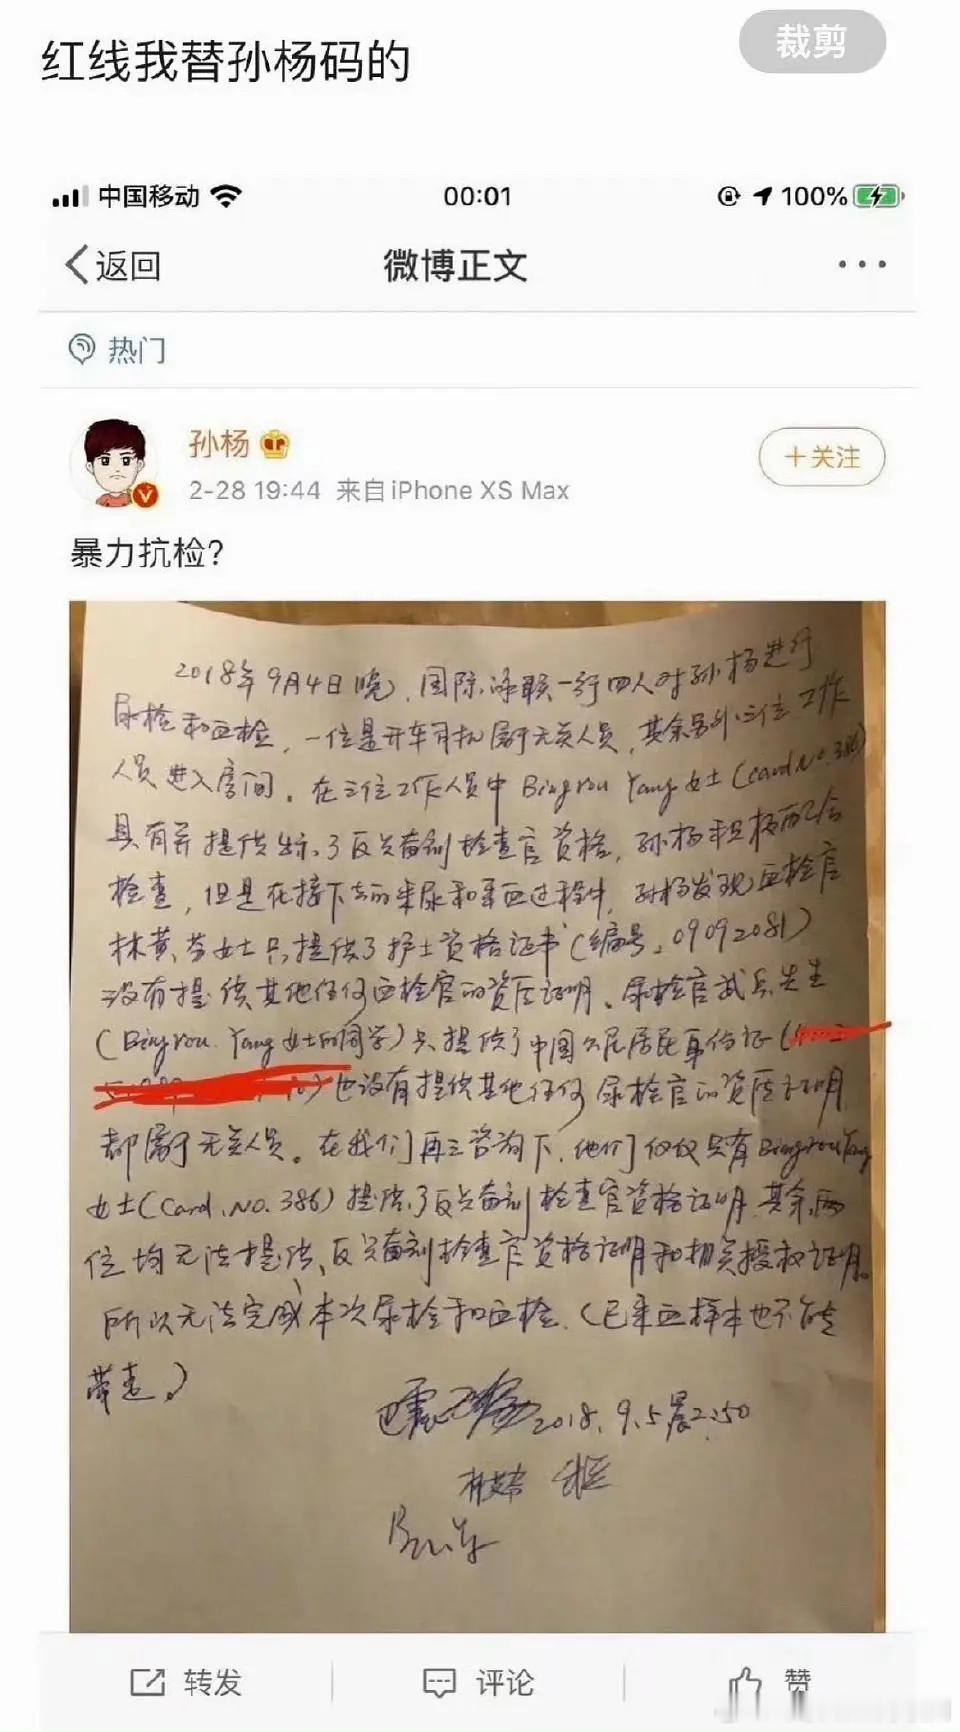 红线我替孙杨码的
裁剪
中国移动 00:01 100%
返回 微博正文
热门
孙杨
2-28 19:44 来自iPhone XS Max
+关注
暴力抗检？
2018年9月4日晚，国际泳联一行四人对孙杨进行
尿检和血检，一位是开车司机属于无关人员，其余另外三位工作
人员进入房间。在三位工作人员中Bingrou Yang女士(card No.386)
具有并提供出示了反兴奋剂检查官资格，孙杨积极配合
检查，但是在接下去的采尿和采血过程中，孙杨发现血检官
林黄芬女士只提供了护士资格证书(编号：09092081)
没有提供其他任何血检官的资质证明。尿检官武兵先生
(Bingrou Yang女士的同学)只提供了中国公民居民身份证(
)也没有提供其他任何尿检官的资质证明
都属于无关人员。在我们再三咨询下，他们仅仅只有Bingrou Yang
女士(Card.No.386)提供了反兴奋剂检查官资格证明，其余两
位均无法提供、反兴奋剂检查官资格证明和相关授权证明。
所以无法完成本次尿检和血检.(已采血样本也不能
带走.)
2018.9.5晨2:50
转发 评论 赞